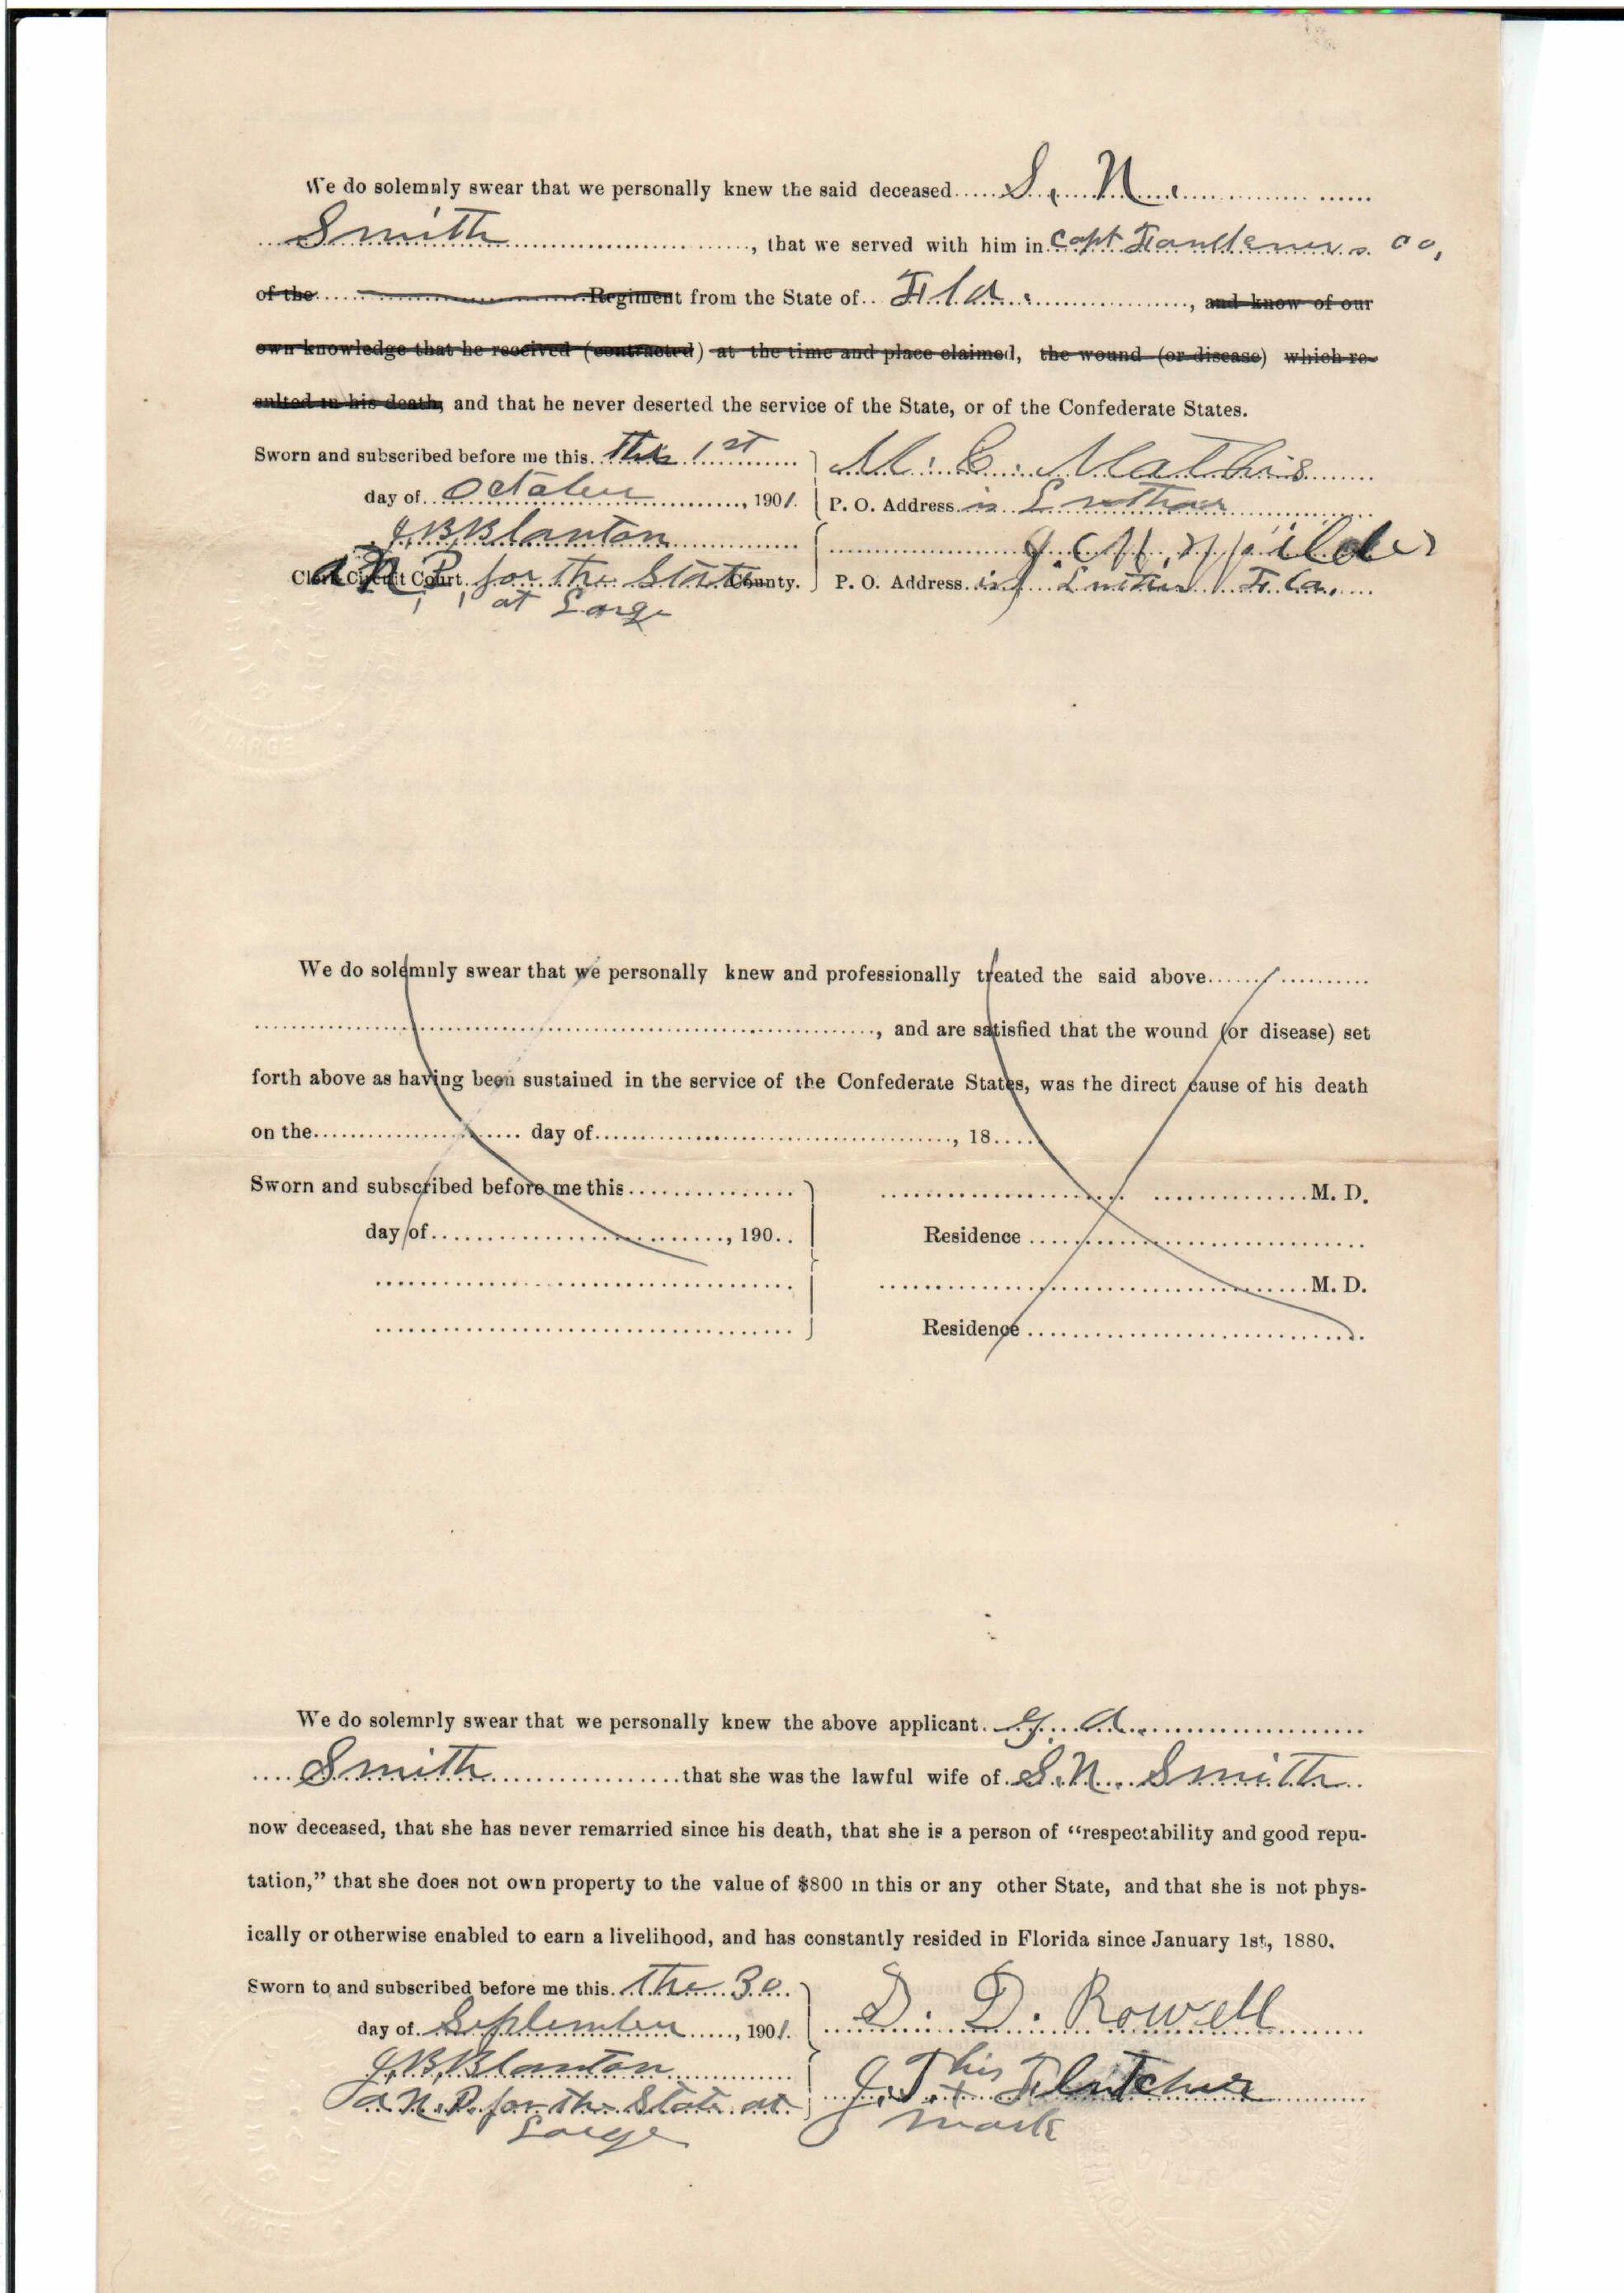 We do solemnly swear that we personally knew the said deceased S. N.
Smith, that we served with him in Capt Faulkeners Co,
of the Regiment from the State of Fla., and know of our
own knowledge that he received (contracted) at the time and place claimed, the wound (or disease) which re-
sulted in his death, and that he never deserted the service of the State, or of the Confederate States.
Sworn and subscribed before me this the 1st
day of October, 1901.
J B Blanton
Clerk Circuit Court County.
a N. P. for the State
at Large
M. C. Mathis
P. O. Address is
Wilder
P. O. Address is Fla.
We do solemnly swear that we personally knew and professionally treated the said above
, and are satisfied that the wound (or disease) set
forth above as having been sustained in the service of the Confederate States, was the direct cause of his death
on the day of, 18
Sworn and subscribed before me this
day of, 190
M. D.
Residence
M. D.
Residence
We do solemnly swear that we personally knew the above applicant A.
Smith that she was the lawful wife of S. N. Smith
now deceased, that she has never remarried since his death, that she is a person of “respectability and good repu-
tation,” that she does not own property to the value of $800 in this or any other State, and that she is not phys-
ically or otherwise enabled to earn a livelihood, and has constantly resided in Florida since January 1st, 1880.
Sworn to and subscribed before me this the 30
day of September, 1901.
J. B. Blanton
a N. P. for the State at
Large
D. D. Rowell
his
J. T. + Flutcher
mark